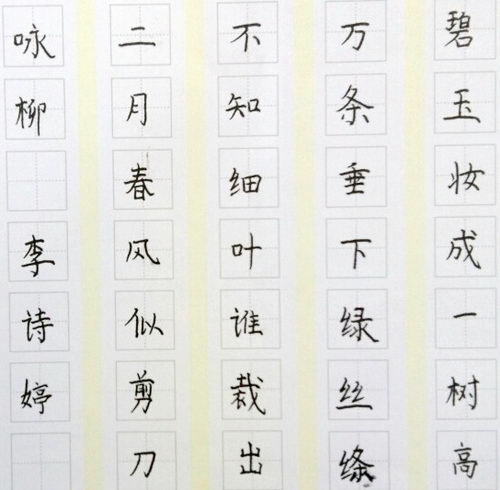 碧玉妆成一树高
万条垂下绿丝绦
不知细叶谁栽出
二月春风似剪刀
咏柳 李诗婷